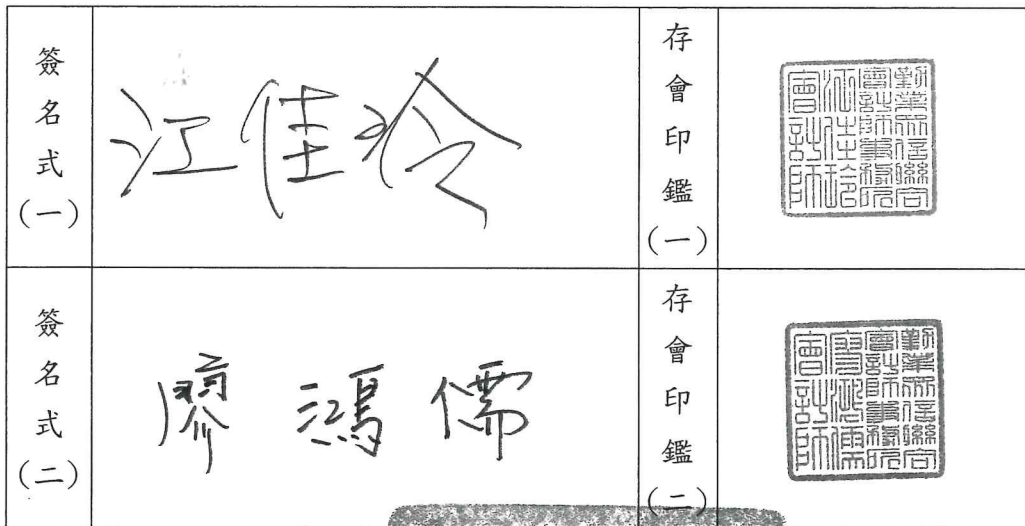 簽名式(一)
江佳玲
存會印鑑(一)
勤業眾信聯合
會計師事務所
江佳玲
會計師
簽名式(二)
廖鴻儒
存會印鑑(二)
勤業眾信聯合
會計師事務所
廖鴻儒
會計師